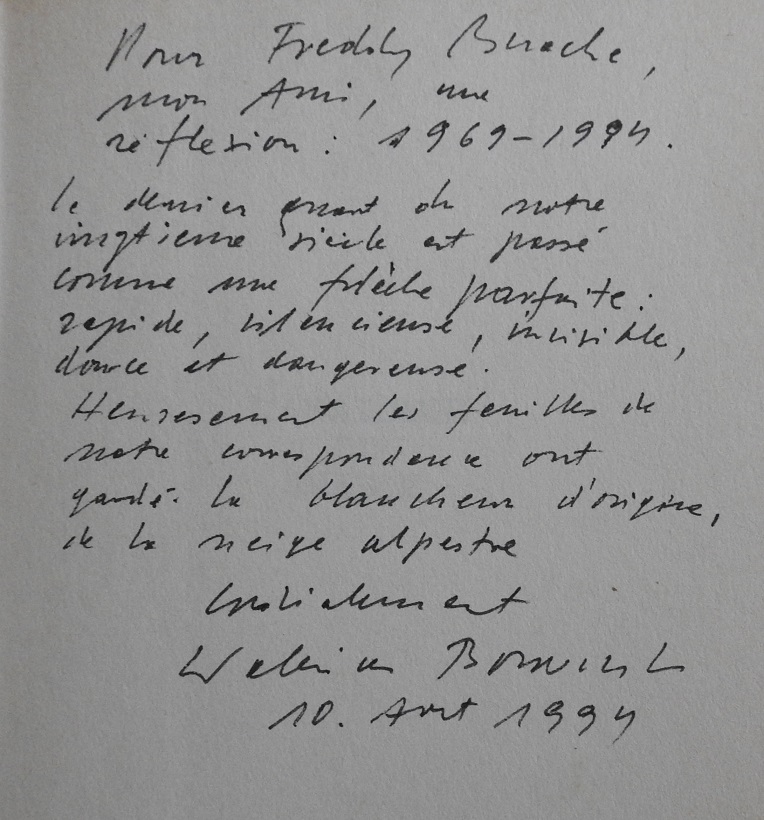 Pour Freddy Buache,
mon Ami, une
réflexion : 1969-1994.
le dernier quart de notre
vingtième siècle est passé
comme une flèche parfaite :
rapide, silencieuse, invisible,
douce et dangereuse.
Heureusement les feuilles de
notre correspondance ont
gardé la blancheur d'origine,
de la neige alpestre
Cordialement
Walerian Borowczyk
10. Août 1994